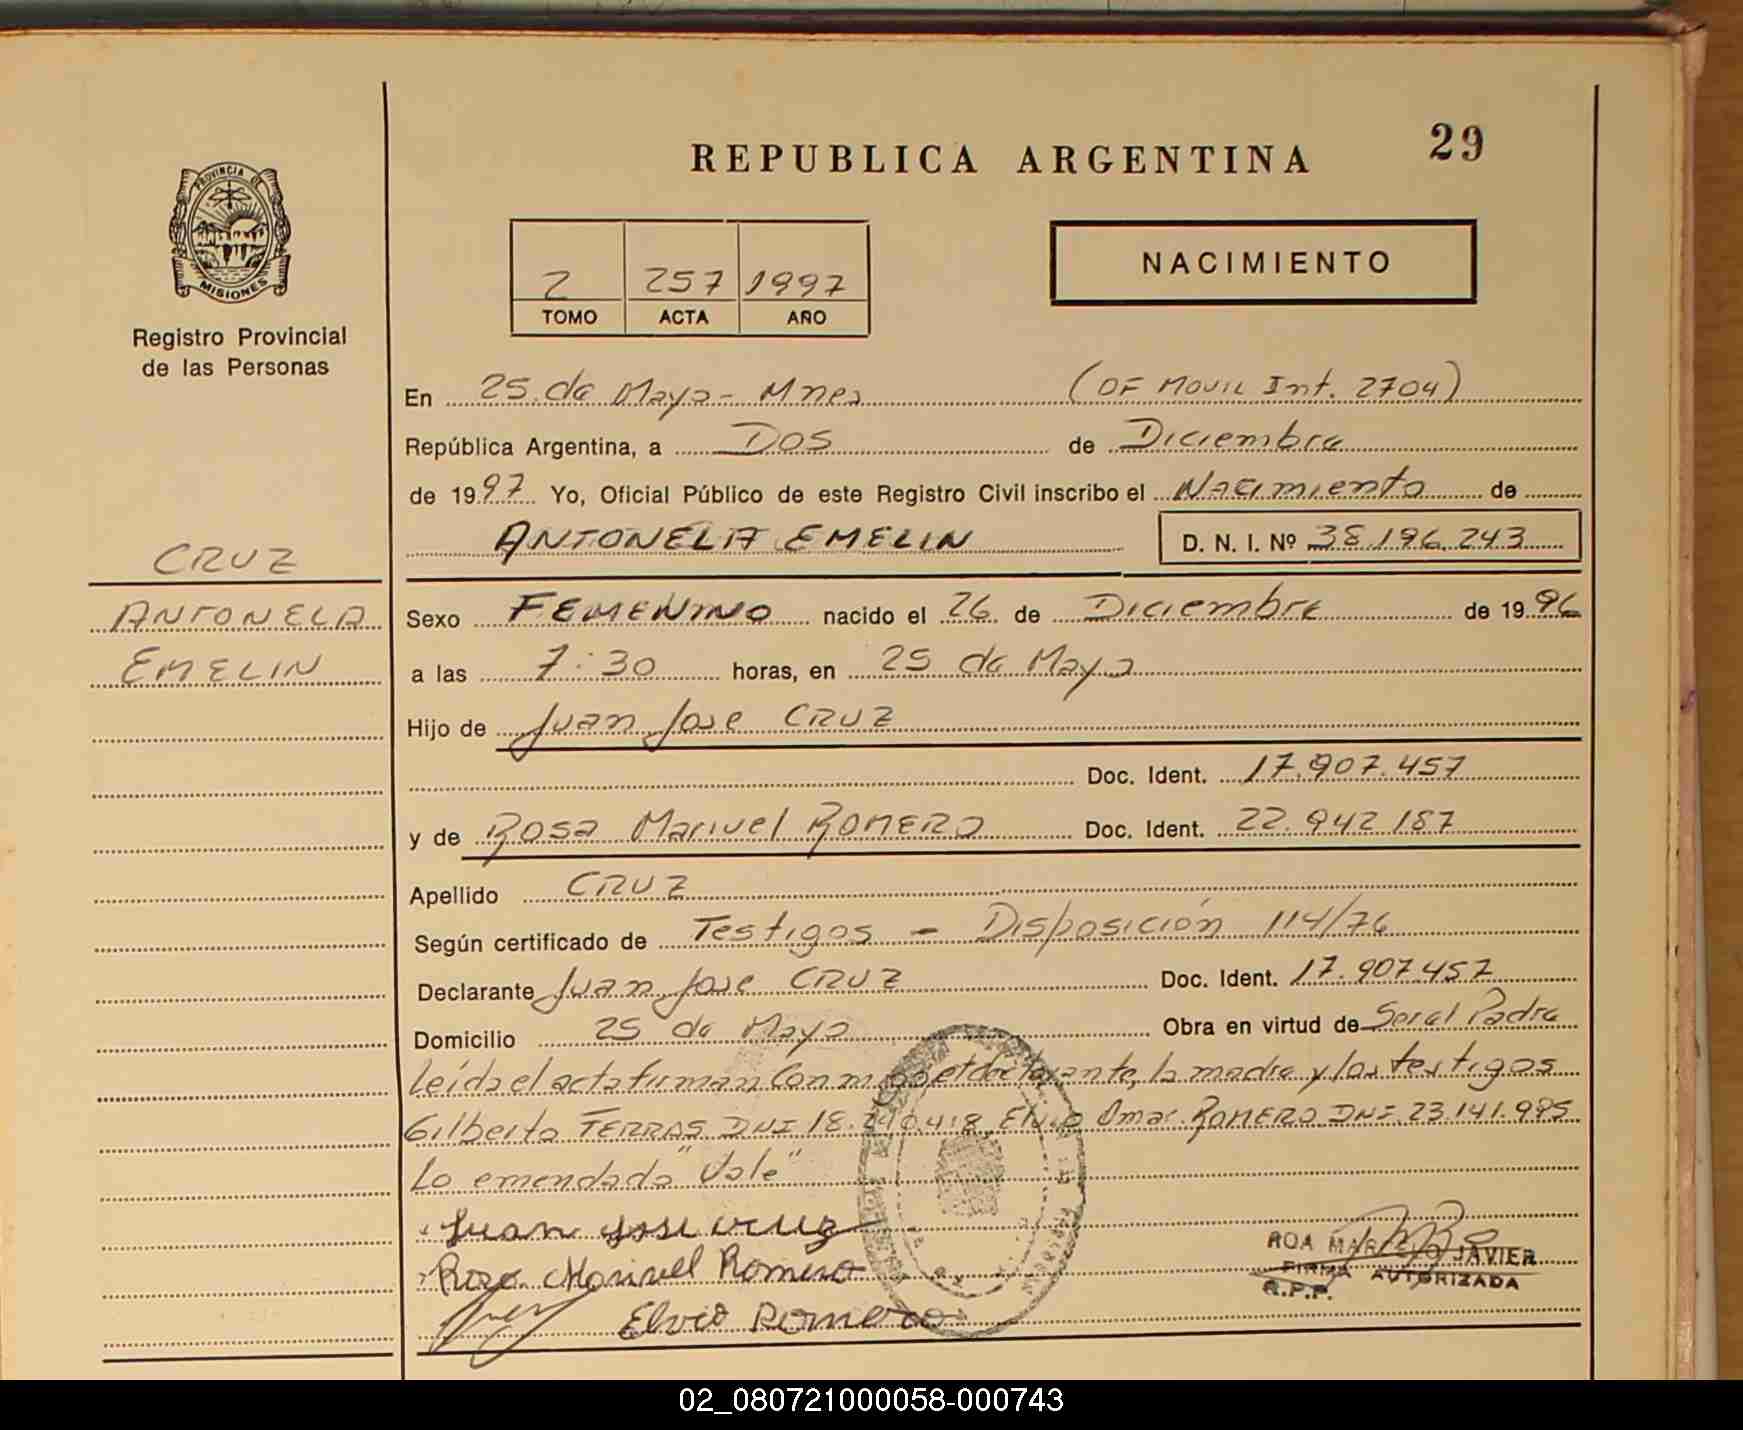 REPUBLICA ARGENTINA
29
PROVINCIA DE
MISIONES
Registro Provincial
de las Personas
2 257 1997
TOMO ACTA AÑO
NACIMIENTO
En 25 de Mayo - Mnes (OF MOVIL Int. 2704)
República Argentina, a DOS de Diciembre
de 1997 Yo, Oficial Público de este Registro Civil inscribo el Nacimiento de
ANTONELA EMELIN D. N. I. Nº 38.196.243
CRUZ
ANTONELA
EMELIN
Sexo FEMENINO nacido el 26 de Diciembre de 1996
a las 7:30 horas, en 25 de Mayo
Hijo de Juan Jose CRUZ
Doc. Ident. 17.907.457
y de Rosa Marivel ROMERO Doc. Ident. 22.942.187
Apellido CRUZ
Según certificado de Testigos - Disposición 114/76
Declarante Juan Jose CRUZ Doc. Ident. 17.907.457
Domicilio 25 de Mayo Obra en virtud de Ser el Padre
Leída el acta firman Conmigo el declarante, la madre y los testigos
Gilberto FERRAS DNI 18.240.418, Elvio Omar ROMERO DNI 23.141.995
Lo emendado "Vale"
Juan Jose Cruz
Rosa Marivel Romero
Elvio Romero
ROA MARCELO JAVIER
FIRMA AUTORIZADA
R.P.P.
02_080721000058-000743